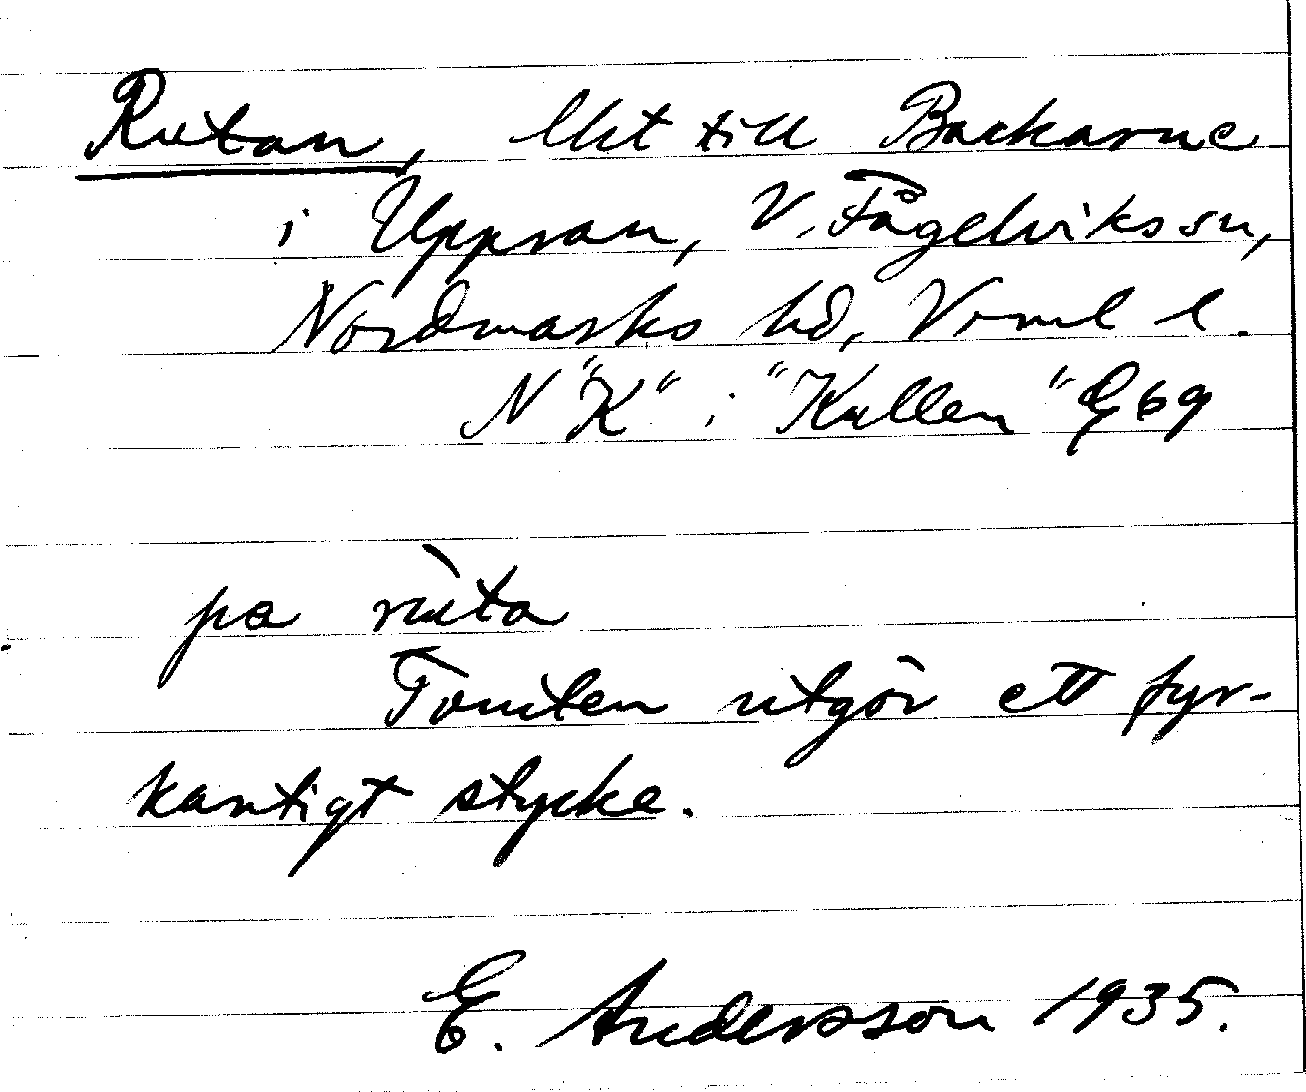 Rutan, lht till Backarne
i Uppsan, V. Fågelviks sn,
Nordmarks hd, Vrml l.
N "K" i "Kullen" G 69
pa rùta
Tomten utgör ett fyr-
kantigt stycke.
E. Andersson 1935.